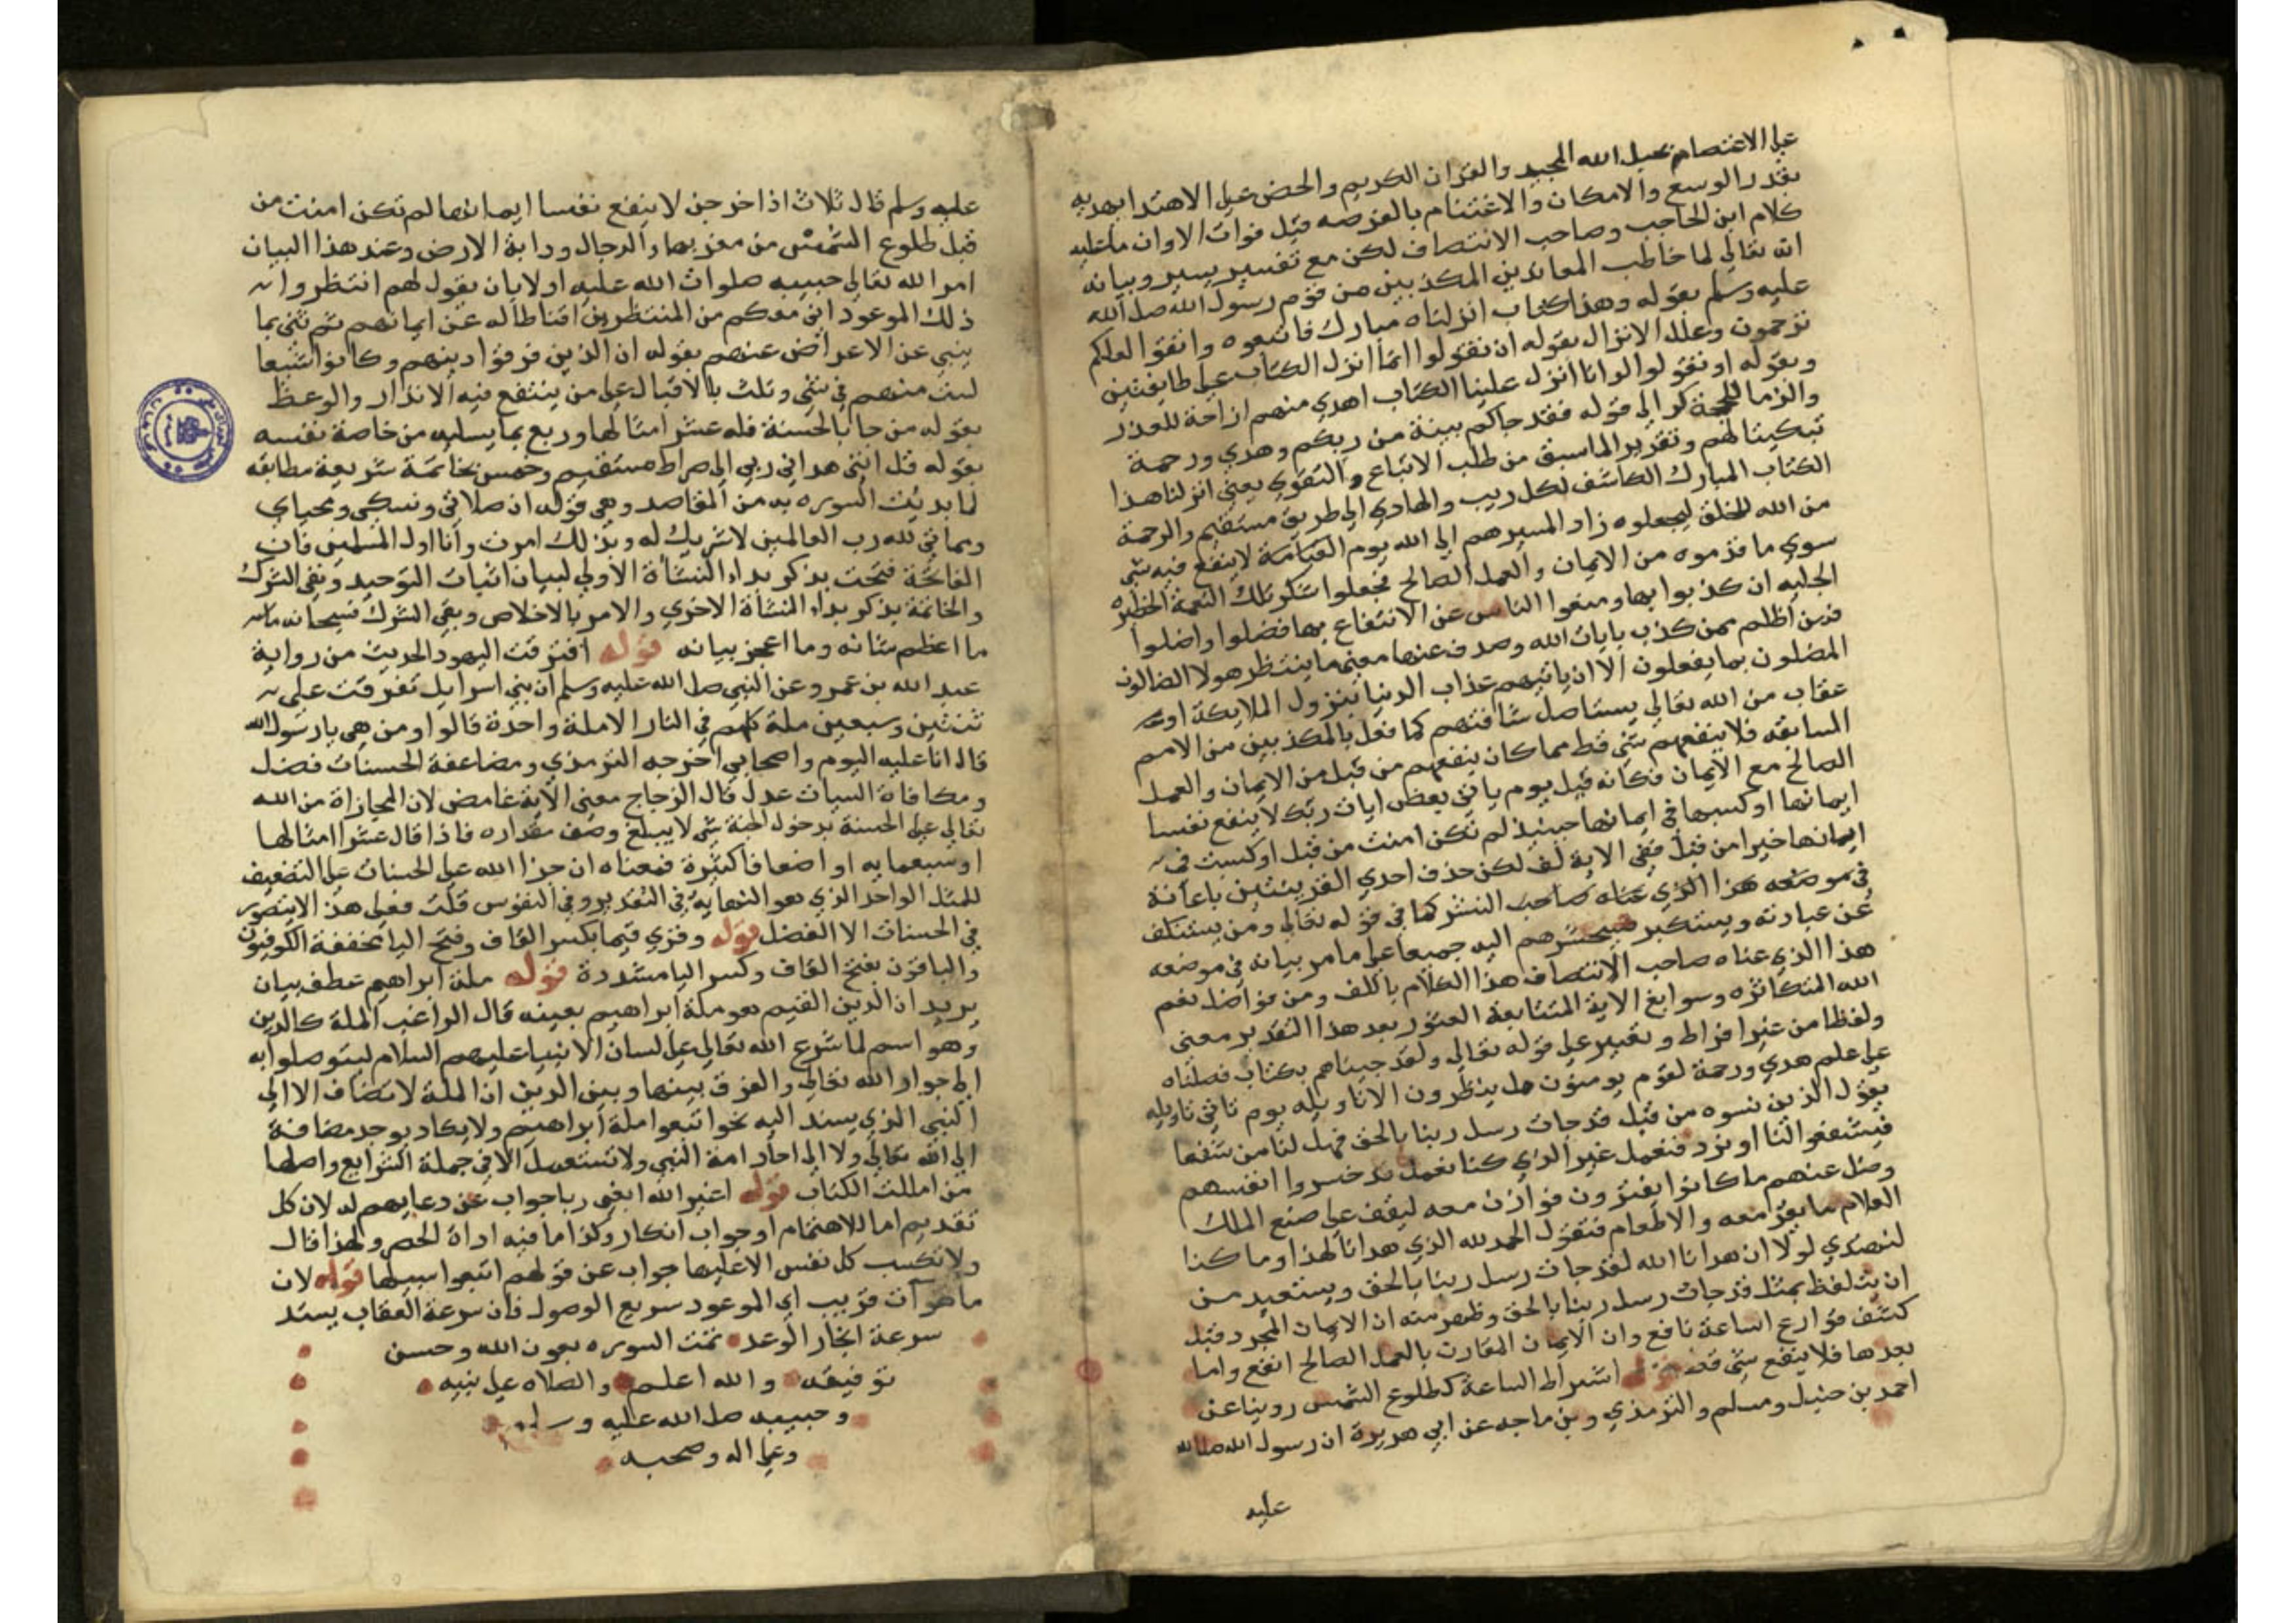 على الاعتصام بحبل الله المجيد والقران الكريم والحض على الاهتدا بهديه
بقدر الوسع والامكان والاغتنام بالفرصه قبل فوات الاوان ما عليه
كلام ابن الحاجب وصاحب الانتصاف لكن مع تفسير يسير وبيانه
ان الله تعالي لما خاطب المعاندين المكذبين من قوم رسول الله صلى الله
عليه وسلم بقوله وهذا كتاب انزلناه مبارك فاتبعوه واتقوا لعلكم
ترحمون وعلل الانزال بقوله ان تقولوا انما انزل الكتاب على طايفتين
وبقوله او تقولوا لو انا انزل علينا الكتاب اهدي منهم ازاحة للعذر
والزاما للحجة كر الي قوله فقد جاكم بينة من ربكم وهدي ورحمة
تبكيتا لهم وتقرير لما سبق من طلب الاتباع والتقوي يعني انزلنا هذا
الكتاب المبارك الكاشف لكل ريب والهادي الي طريق مستقيم والرحمة
من الله للخلق ليجعلوه زاد المسيرهم الي الله يوم القيامة لا ينفع فيه شي
سوي ما قدموه من الايمان والعمل الصالح فجعلوا شكر تلك النعمة الخطيره
الجليه ان كذبوا بها ومنعوا الناس عن الانتفاع بها فضلوا واضلوا
فمن اظلم ممن كذب بايات الله وصدف عنها معني ما ينتظر هولا الضالون
المضلون بما يفعلون الا ان ياتيهم عذاب الدنيا بنزول الملايكة او
عقاب من الله تعالي يستاصل شافتهم كما فعل بالمكذبين من الامم
السابقه فلا ينفعهم شي قط مما كان ينفعهم من قبل من الايمان والعمل
الصالح مع الايمان فكانه قيل يوم ياتي بعض ايات ربك لا ينفع نفسا
ايمانها او كسبها في ايمانها حينيذ لم تكن امنت من قبل او كسبت في
ايمانها خيرا من قبل ففي الاية لف لكن حذف احدي القرينتين باعانة
النشر كما في قوله تعالي ومن يستنكف
عن عبادته ويستكبر فسيحشرهم اليه جميعا على ما مر بيانه في موضعه
هذا الذي عناه صاحب الانتصاف هذا الكلام باللف ومن فواضل نعم
الله المتكاثره وسوابغ الاية المتتابعة العثور بعد هذا التقدير معنى
ولفظا من غير افراط وتغيير على قوله تعالي ولقد جيناهم بكتاب فصلناه
على علم هدي ورحمة لقوم يومنون هل ينظرون الا تاويله يوم تاتي تاويله
يقول الذين نسوه من قبل قد جات رسل ربنا بالحق فهل لنا من شفعا
فيشفعوا لنا او نرد فنعمل غير الذي كنا نعمل قد خسروا انفسهم
وضل عنهم ما كانوا يفترون فوازن معه ليقف على صنع الملك
العلام ما يقرا معه والاطعام فنقول الحمد لله الذي هدانا لهذا وما كنا
لنهتدي لولا ان هدانا الله لقد جات رسل ربنا بالحق ويستعيد من
ان يتلفظ بمثل قد جات رسل ربنا بالحق وظهر منه ان الايمان المجرد قبل
كشف قوارع الساعة نافع وان الايمان المقارن بالعمل الصالح انفع واما
بعدها فلا ينفع شي قط قوله اشراط الساعة كطلوع الشمس روينا عن
احمد بن حنبل ومسلم والترمذي وبن ماجه عن ابي هريرة ان رسول الله صلى الله
عليه
عليه وسلم قال ثلاث اذا خرجن لا ينفع نفسا ايمانها لم تكن امنت من
قبل طلوع الشمس من مغربها والدجال ودابة الارض وعند هذا البيان
امر الله تعالي حبيبه صلوات الله عليه اولا بان يقول لهم انتظروا
ذلك الموعود اني معكم من المنتظرين اقناطا له عن ايمانهم ثم ثني بما
ينبي عن الاعراض عنهم بقوله ان الذين فرقوا دينهم وكانوا شيعا
لست منهم في شي وثلث بالاقبال على من ينتفع فيه الانذار والوعظ
بقوله من جا بالحسنة فله عشر امثالها وربع بما يسليه من خاصة نفسه
بقوله قل انني هداني ربي الي صراط مستقيم وخمس بخاتمة شريعة مطابقه
لما بديت السوره به من المقاصد وهي قوله ان صلاتي ونسكي ومحياي
ومماتي لله رب العالمين لا شريك له وبذلك امرت وانا اول المسلمين فان
الفاتحة فتحت بذكر بداء النشاة الاولي لبيان اثبات التوحيد ونفي الشرك
والخاتمة بذكر بداء المنشأة الاخري والامر بالاخلاص ونفي الشرك فسبحانه
ما اعظم شانه وما اعجز بيانه قوله افترقت اليهود الحديث من رواية
عبد الله بن عمرو عن النبي صلى الله عليه وسلم ان بني اسرايل تفرقت على
ثنتين وسبعين ملة كلهم في النار الا ملة واحدة قالوا ومن هي يا رسول الله
قال انا عليه اليوم واصحابي اخرجه الترمذي ومضاعفة الحسنات فضل
ومكافاة السيات عدل قال الزجاج معني الاية غامض لان المجازاة من الله
تعالي على الحسنة بدخول الجنة شي لا يبلغ وصف مقداره فاذا قال عشر امثالها
او سبعمايه او اضعافا كثيرة فمعناه ان جزا الله على الحسنات على التضعيف
للمثل الواحد الذي هو النهاية في التقدير وفي النفوس قلت فعلى هذا لا يتصور
في الحسنات الا الفضل قوله وقري قيما بكسر القاف وفتح اليا مخففة الكوفيون
والباقون بفتح القاف وكسر اليا مشددة قوله ملة ابراهيم عطف بيان
يريد ان الدين القيم هو ملة ابراهيم بعينه قال الراغب الملة كالدين
وهو اسم لما شرع الله تعالي على لسان الانبيا عليهم السلام ليتوصلوا به
الي جوار الله تعالي والفرق بينها وبين الدين ان الملة لا تضاف الا الي
النبي الذي يسند اليه نحو اتبعوا ملة ابراهيم ولا يكاد يوجد مضافة
الي الله تعالي ولا الي احاد امة النبي ولا تستعمل الا في جملة الشرايع واصلها
من امللت الكتاب قوله اغير الله ابغي ربا جواب عن دعايهم له لان كل
تقديم اما للاهتمام او جواب انكار وكذا ما فيه اداة الحصر ولهذا قال
ولا تكسب كل نفس الا عليها جواب عن قولهم اتبعوا سبيلها قوله لان
ما هو آت قريب اي الموعود سريع الوصول فان سرعة العقاب يستد
سرعة انجاز الوعد تمت السوره بعون الله وحسن
توفيقه والله اعلم والصلاه على نبيه
وحبيبه صلى الله عليه وسلم
وعلى اله وصحبه